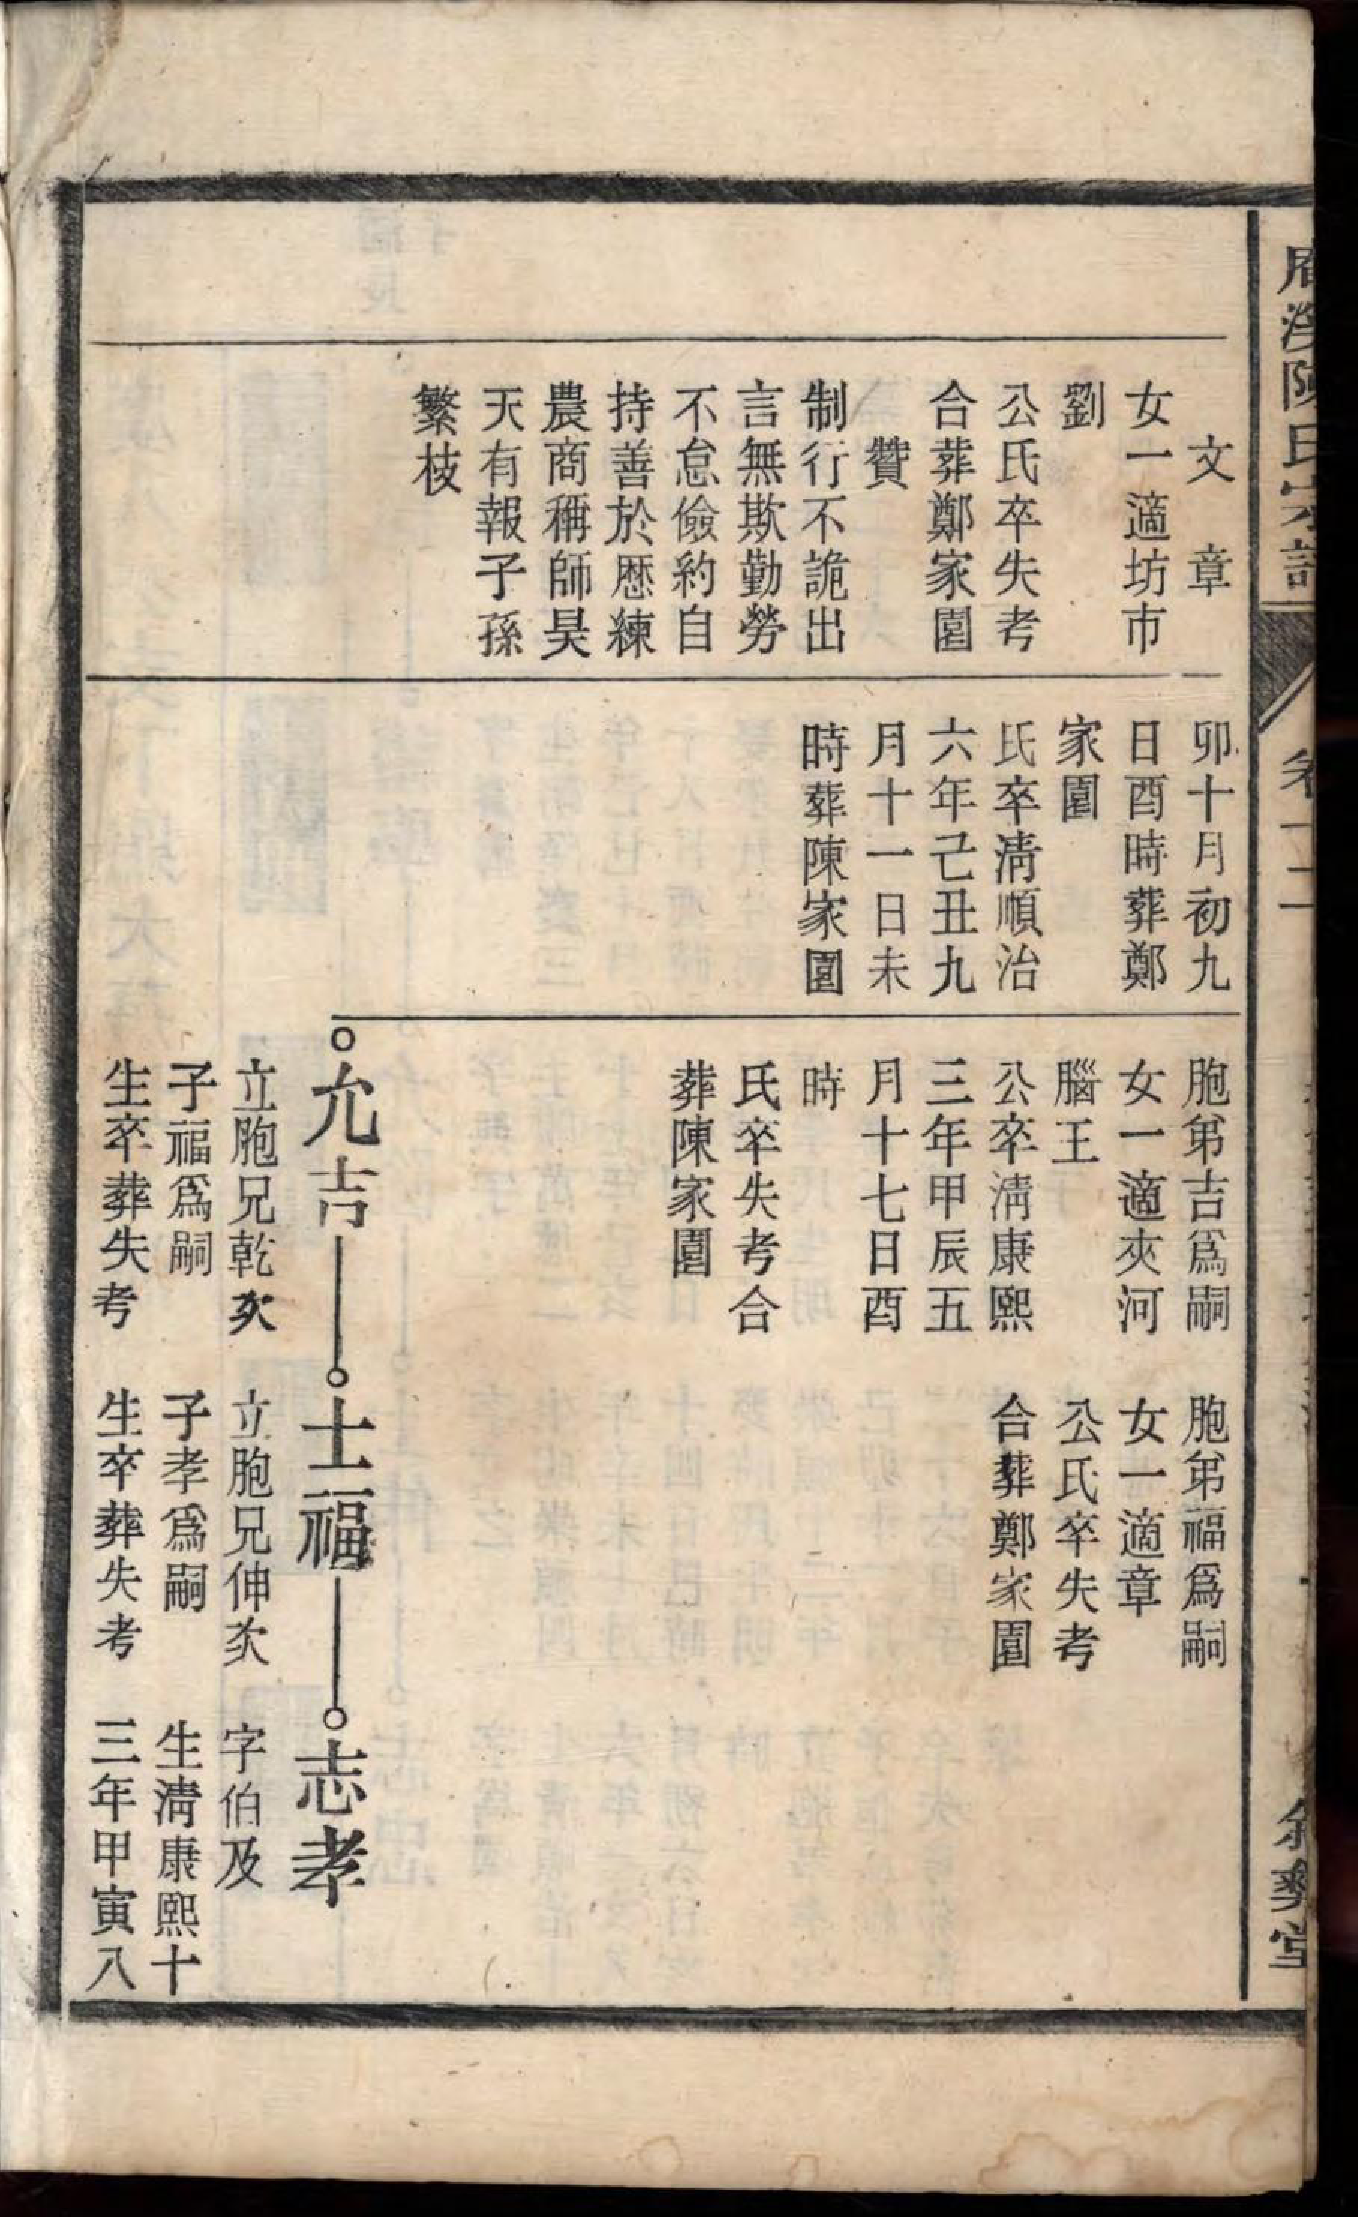 文章
女一適坊市
劉
公氏卒失考
合葬鄭家園
贊
制行不詭出
言無欺勤勞
不怠儉約自
持善於歴練
農商稱師昊
天有報子孫
繁枝
卯十月初九
日酉時葬鄭
家園
氏卒淸順治
六年己丑九
月十一日未
時葬陳家園
胞弟吉爲嗣
女一適夾河
腦王
公卒淸康熙
三年甲辰五
月十七日酉
時
氏卒失考合
葬陳家園
胞弟福爲嗣
女一適章
公氏卒失考
合葬鄭家園
允吉
立胞兄乾次
子福爲嗣
生卒葬失考
士福
立胞兄伸次
子孝爲嗣
生卒葬失考
志孝
字伯及
生淸康熙十
三年甲寅八